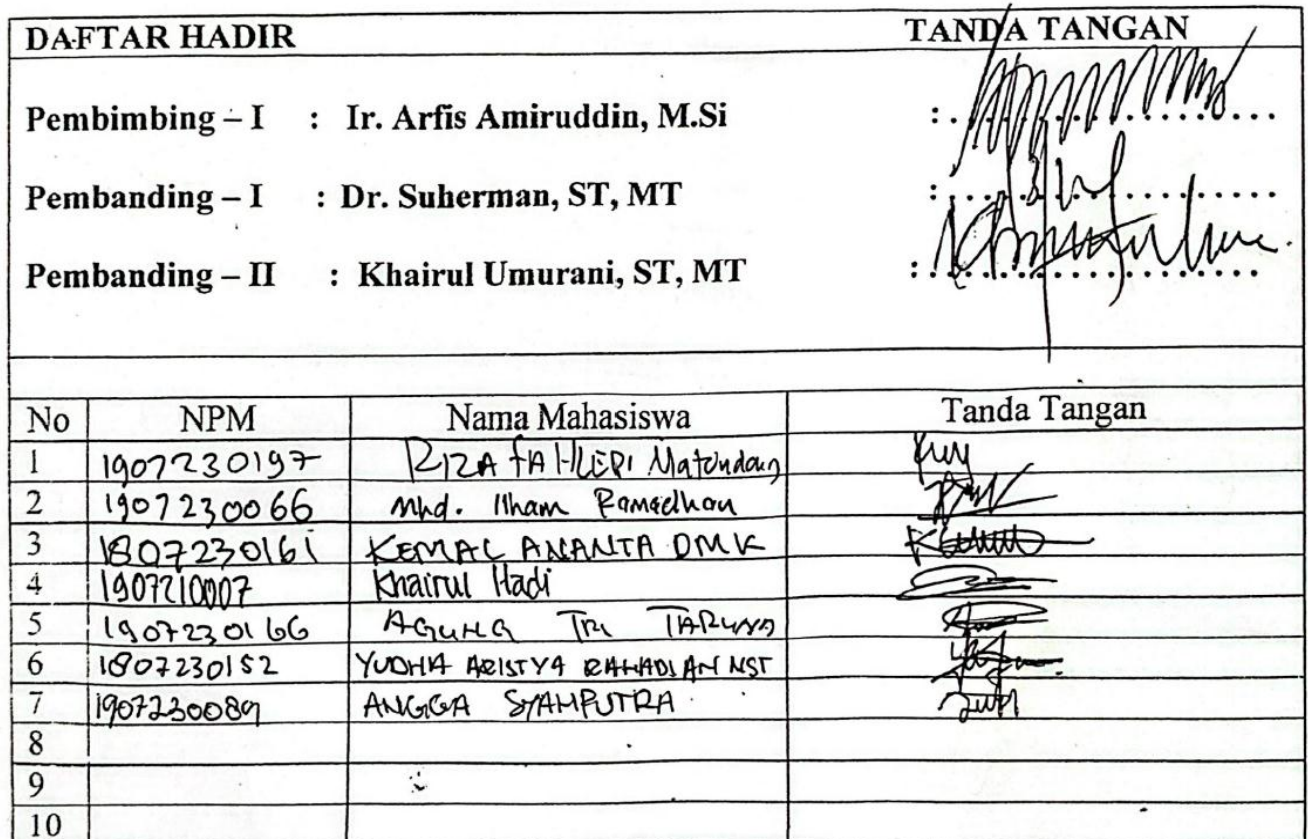 DAFTAR HADIR TANDA TANGAN
Pembimbing – I : Ir. Arfis Amiruddin, M.Si : ....................
Pembanding – I : Dr. Suherman, ST, MT : ....................
Pembanding – II : Khairul Umurani, ST, MT : ....................
No NPM Nama Mahasiswa Tanda Tangan
1 1907230197 RIZA FAHLEPI Matondang
2 1907230066 Mhd. Ilham Ramadhan
3 1807230161 KEMAL ANANTA DMK
4 1907210007 Khairul Hadi
5 1907230166 AGUNG TRI TARUNA
6 1807230152 YUDHA ARISTYA RAHADIAN NST
7 1907230089 ANGGA SYAHPUTRA
8
9
10